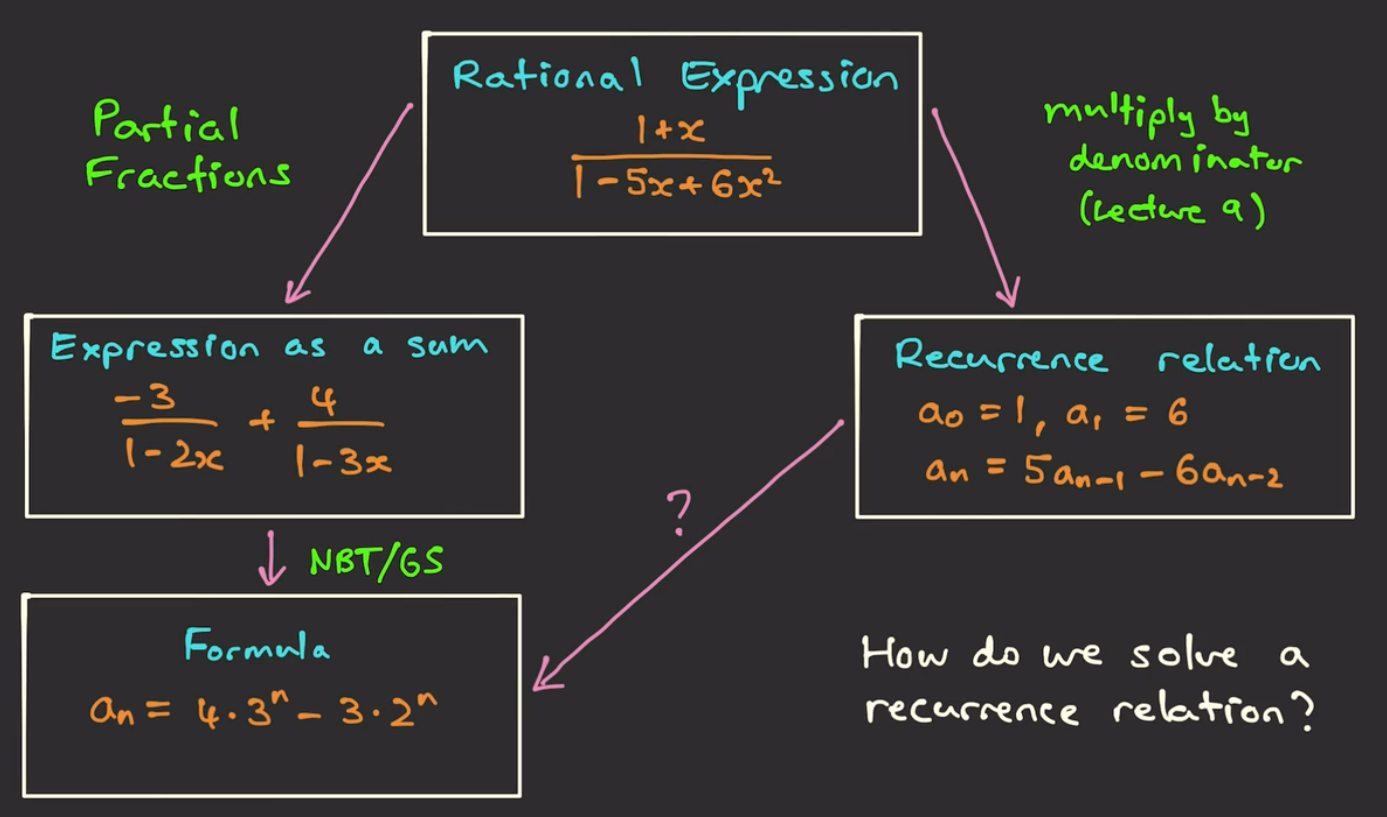 Rational Expression
1+x
1-5x+6x²
Partial
Fractions
multiply by
denominator
(Lecture 9)
Expression as a sum
-3/(1-2x) + 4/(1-3x)
Recurrence relation
a₀ = 1, a₁ = 6
aₙ = 5aₙ₋₁ - 6aₙ₋₂
?
NBT/GS
Formula
aₙ = 4·3ⁿ - 3·2ⁿ
How do we solve a
recurrence relation?